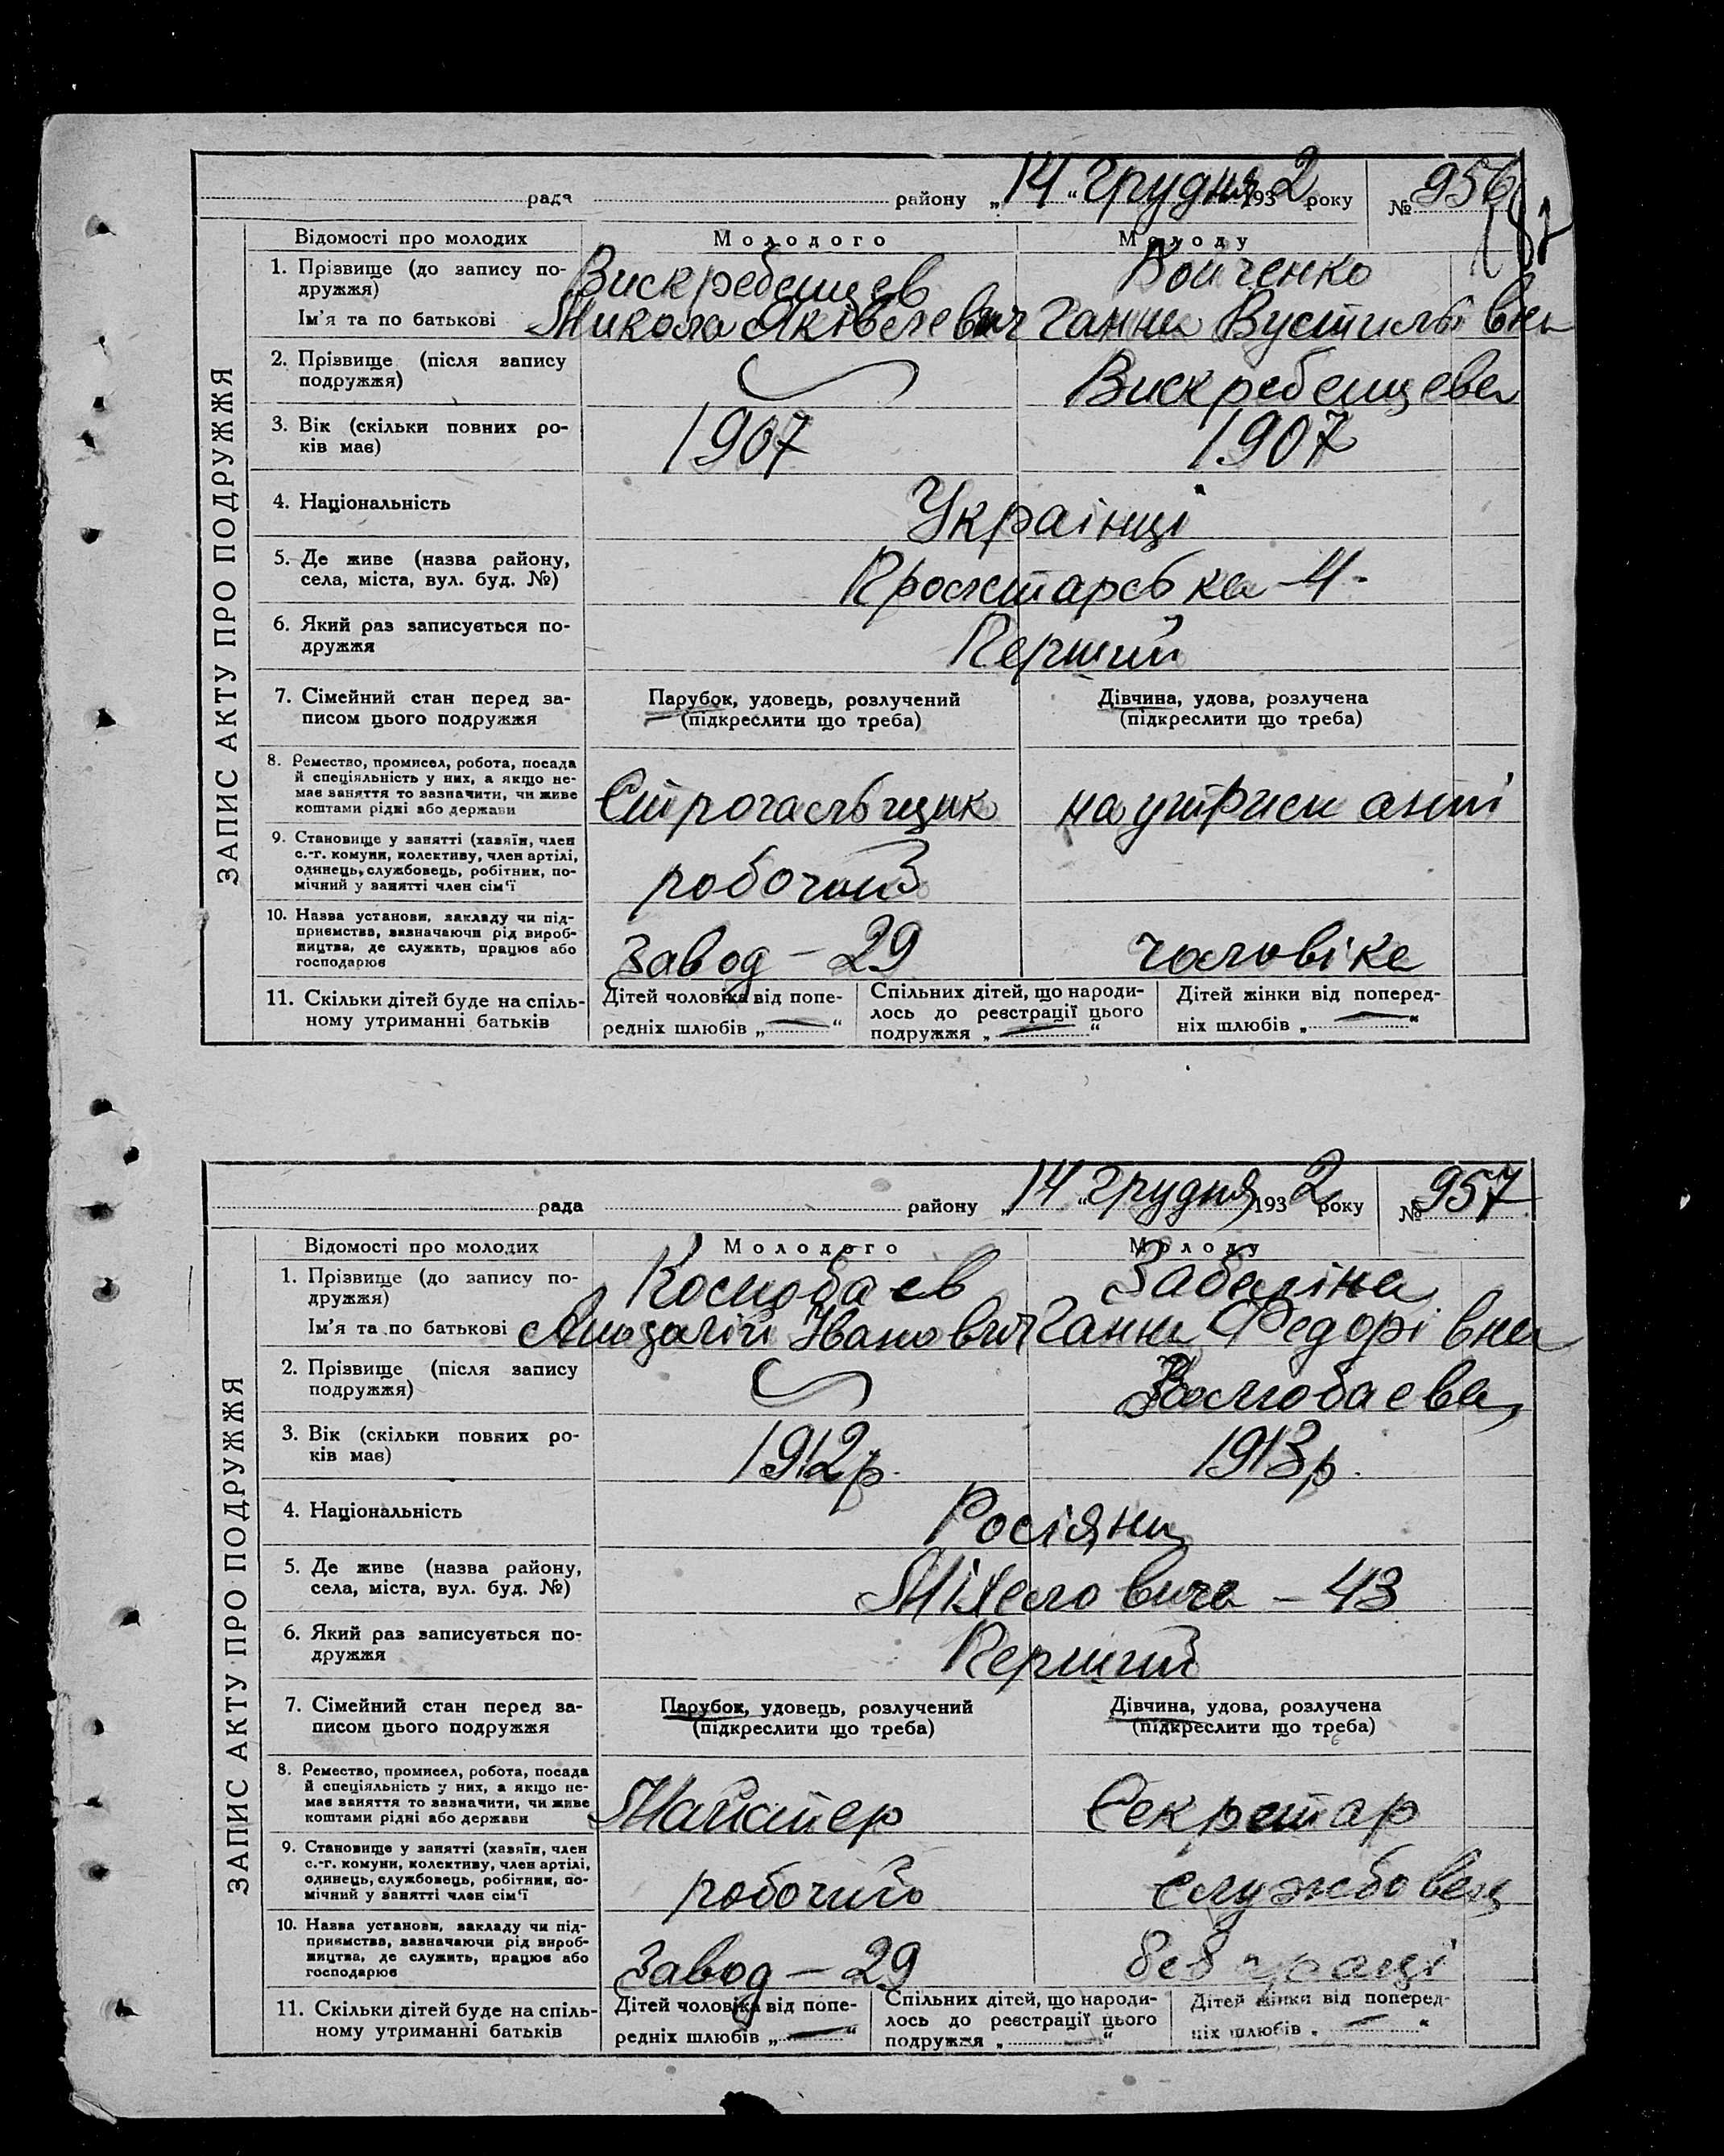 рада района „14“ Грудня 1932 року № 956
ЗАПИС АКТУ ПРО ПОДРУЖЖЯ
Відомості про молодих Молодого Молоду
1. Прізвище (до запису по- Вискребенцев Войченко
дружжя)
Ім'я та по батькові Микола Ганна
2. Прізвище (після запису Вискребенцева
подружжя)
3. Вік (скільки повних ро- 1907 1907
ків має)
4. Національність Українці
5. Де живе (назва району, Пролетарська 4.
села, міста, вул. буд. №)
6. Який раз записується по- Перший
дружжя
7. Сімейний стан перед за- Парубок, удовець, розлучений Дівчина, удова, розлучена
писом цього подружжя (підкреслити що треба) (підкреслити що треба)
8. Ремество, промисел, робота, посада
й спеціяльність у них, а якщо не-
має заняття то зазначити, чи живе
коштами рідні або держави Строгальщик на утриманні
9. Становище у занятті (хазяїн, член
с.-г. комуни, колективу, член артілі,
одинець, службовець, робітник, по- робочий
мічний у занятті член сім'ї
10. Назва установи, закладу чи під-
приємства, зазначаючи рід вироб-
ництва, де служить, працює або завод – 29 чоловіка
господарює
11. Скільки дітей буде на спіль- Дітей чоловіка від попе- Спільних дітей, що народи- Дітей жінки від поперед-
ному утриманні батьків редніх шлюбів „—“ лось до реєстрації цього ніх шлюбів „—“
подружжя „—“
рада району „14“ Грудня 1932 року № 957
ЗАПИС АКТУ ПРО ПОДРУЖЖЯ
Відомості про молодих Молодого Молоду
1. Прізвище (до запису по- Забеліна
дружжя)
Ім'я та по батькові Іванович Ганна Федорівна
2. Прізвище (після запису
подружжя)
3. Вік (скільки повних ро- 1912р. 1913р.
ків має)
4. Національність Росіяни
5. Де живе (назва району, – 43
села, міста, вул. буд. №)
6. Який раз записується по- Перший
дружжя
7. Сімейний стан перед за- Парубок, удовець, розлучений Дівчина, удова, розлучена
писом цього подружжя (підкреслити що треба) (підкреслити що треба)
8. Ремество, промисел, робота, посада
й спеціяльність у них, а якщо не-
має заняття то зазначити, чи живе
коштами рідні або держави Майстер Секретар
9. Становище у занятті (хазяїн, член
с.-г. комуни, колективу, член артілі,
одинець, службовець, робітник, по- робочий службовец
мічний у занятті член сім'ї
10. Назва установи, закладу чи під-
приємства, зазначаючи рід вироб-
ництва, де служить, працює або завод – 29 без праці
господарює
11. Скільки дітей буде на спіль- Дітей чоловіка від попе- Спільних дітей, що народи- Дітей жінки від поперед-
ному утриманні батьків редніх шлюбів „—“ лось до реєстрації цього ніх шлюбів „—“
подружжя „—“